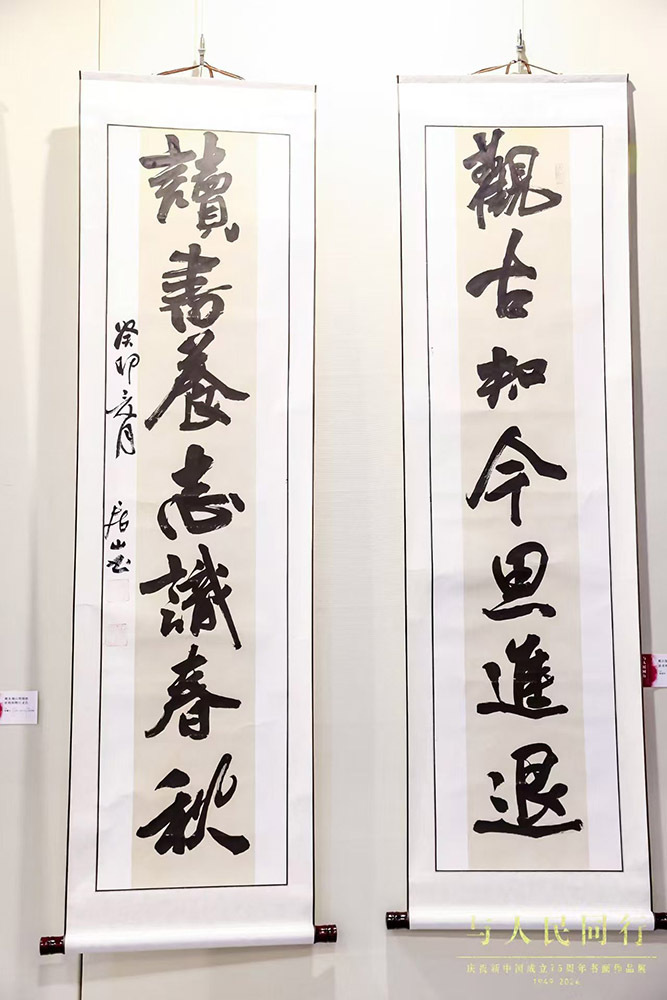 觀古知今思進退
讀書養志識春秋
癸卯六月
居山书
与人民同行
庆祝新中国成立75周年书画作品展
1949-2024